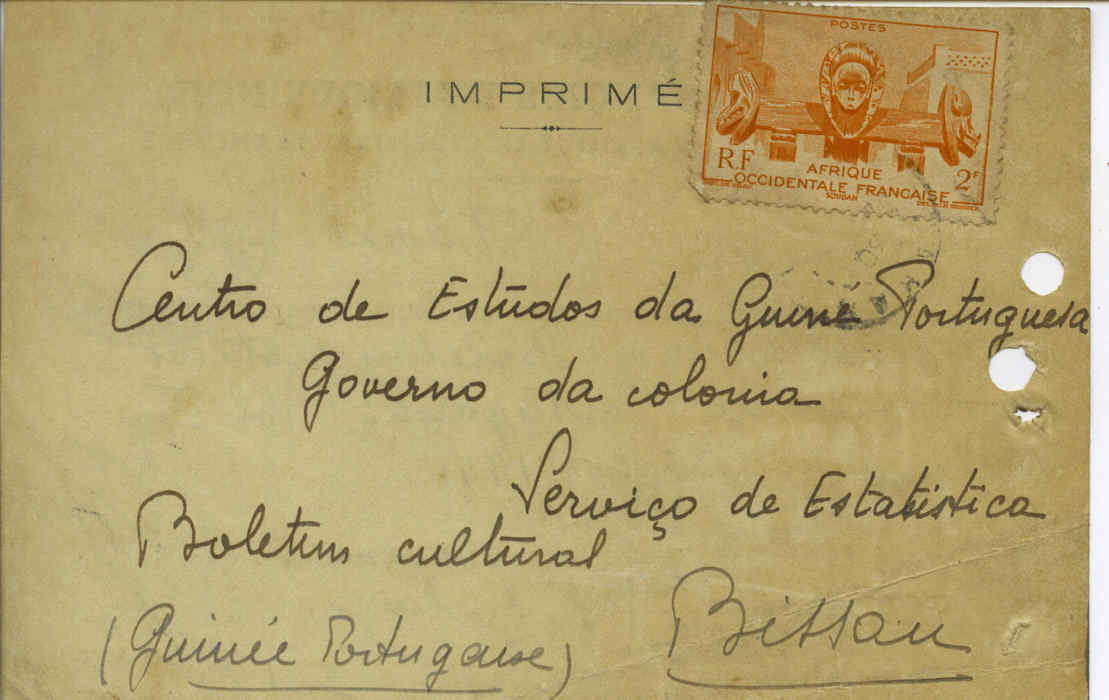 POSTES
IMPRIMÉ
R.F
AFRIQUE
OCCIDENTALE FRANCAISE
2F
SOUDAN
Centro de Estudos da Guiné Portuguesa
Governo da colonia
Serviço de Estatistica
Boletim cultural
(Guinée Portugaise)
Bissau